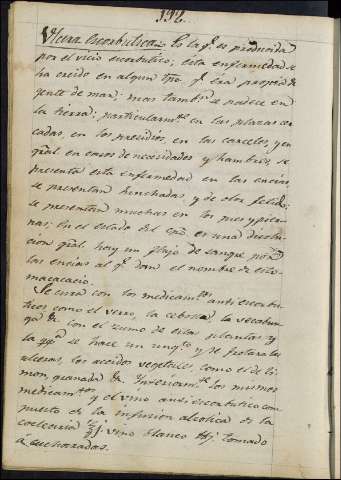 132.
Ulcera Escorbutica. Es la q.e es producida
por el vicio escorbutico; esta enfermedad se
ha creido en algun tpo. q.e era propia de
gente de mar; mas tambn. se padece en
la tierra; particularm.te en las plazas cer
cadas, en los presidios, en las carceles, y en
gral. en casos de necesidades y hambres, se
presenta esta enfermedad en las encias,
se presentan hinchadas, y de olor fetido;
se presentan muchas en los pies y pier-
nas; En el estado del es una disolu-
cion gral. hay un flujo de sangre por
las encias al q.e dan el nombre de esto-
macacacio.
Se cura con los medicam.tos antiescorbu-
ticos como el verro, la coclearia la vecabun-
ga &. con el zumo de estas plantas y
la se hace un ung.to y se frotan las
ulceras, los acidos vegetales, como el de li-
mon, granada &. Interiorm.te los mismos
medicam.tos y el vino antiescorbutico com-
puesto de la infusion alcolica de la
coclearia ℥j. vino blanco ℔j tomado
á cucharadas.